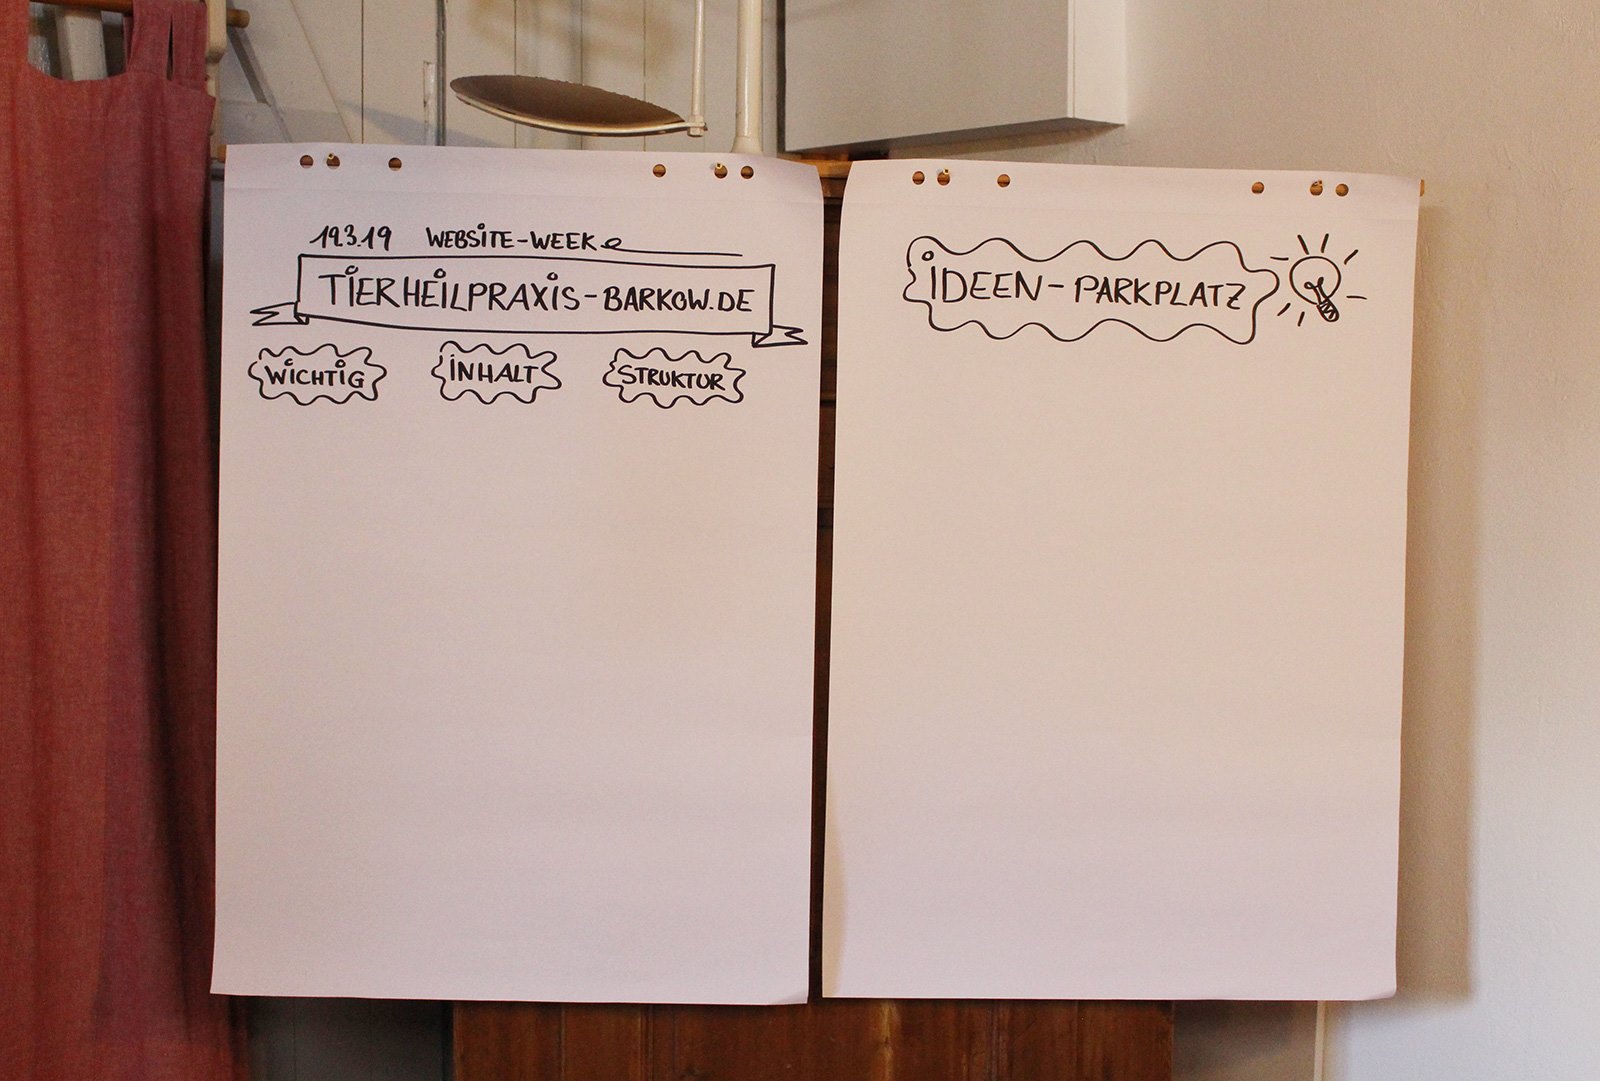 19.3.19 WEBSITE-WEEK
TIERHEILPRAXIS-BARKOW.DE
WICHTIG INHALT STRUKTUR
IDEEN-PARKPLATZ